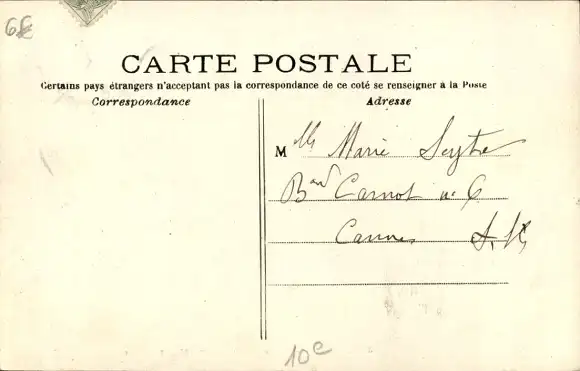 6€
CARTE POSTALE
Certains pays étrangers n'acceptant pas la correspondance de ce coté se renseigner à la Poste
Correspondance
Adresse
Mlle Marie
Bard Carnot n° 6
Cannes A. M.
10e